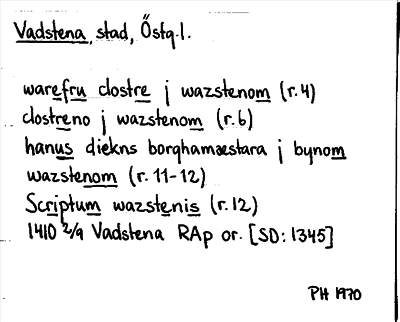 Vadstena, stad, Östg.l.
warefru clostre j wazstenom (r. 4)
clostreno j wazstenom (r. 6)
hanus diekns borghamæstara j bynom
wazstenom (r. 11-12)
Scriptum wazstenis (r. 12)
1410 2/9 Vadstena RAp or. [SD: 1345]
PH 1970